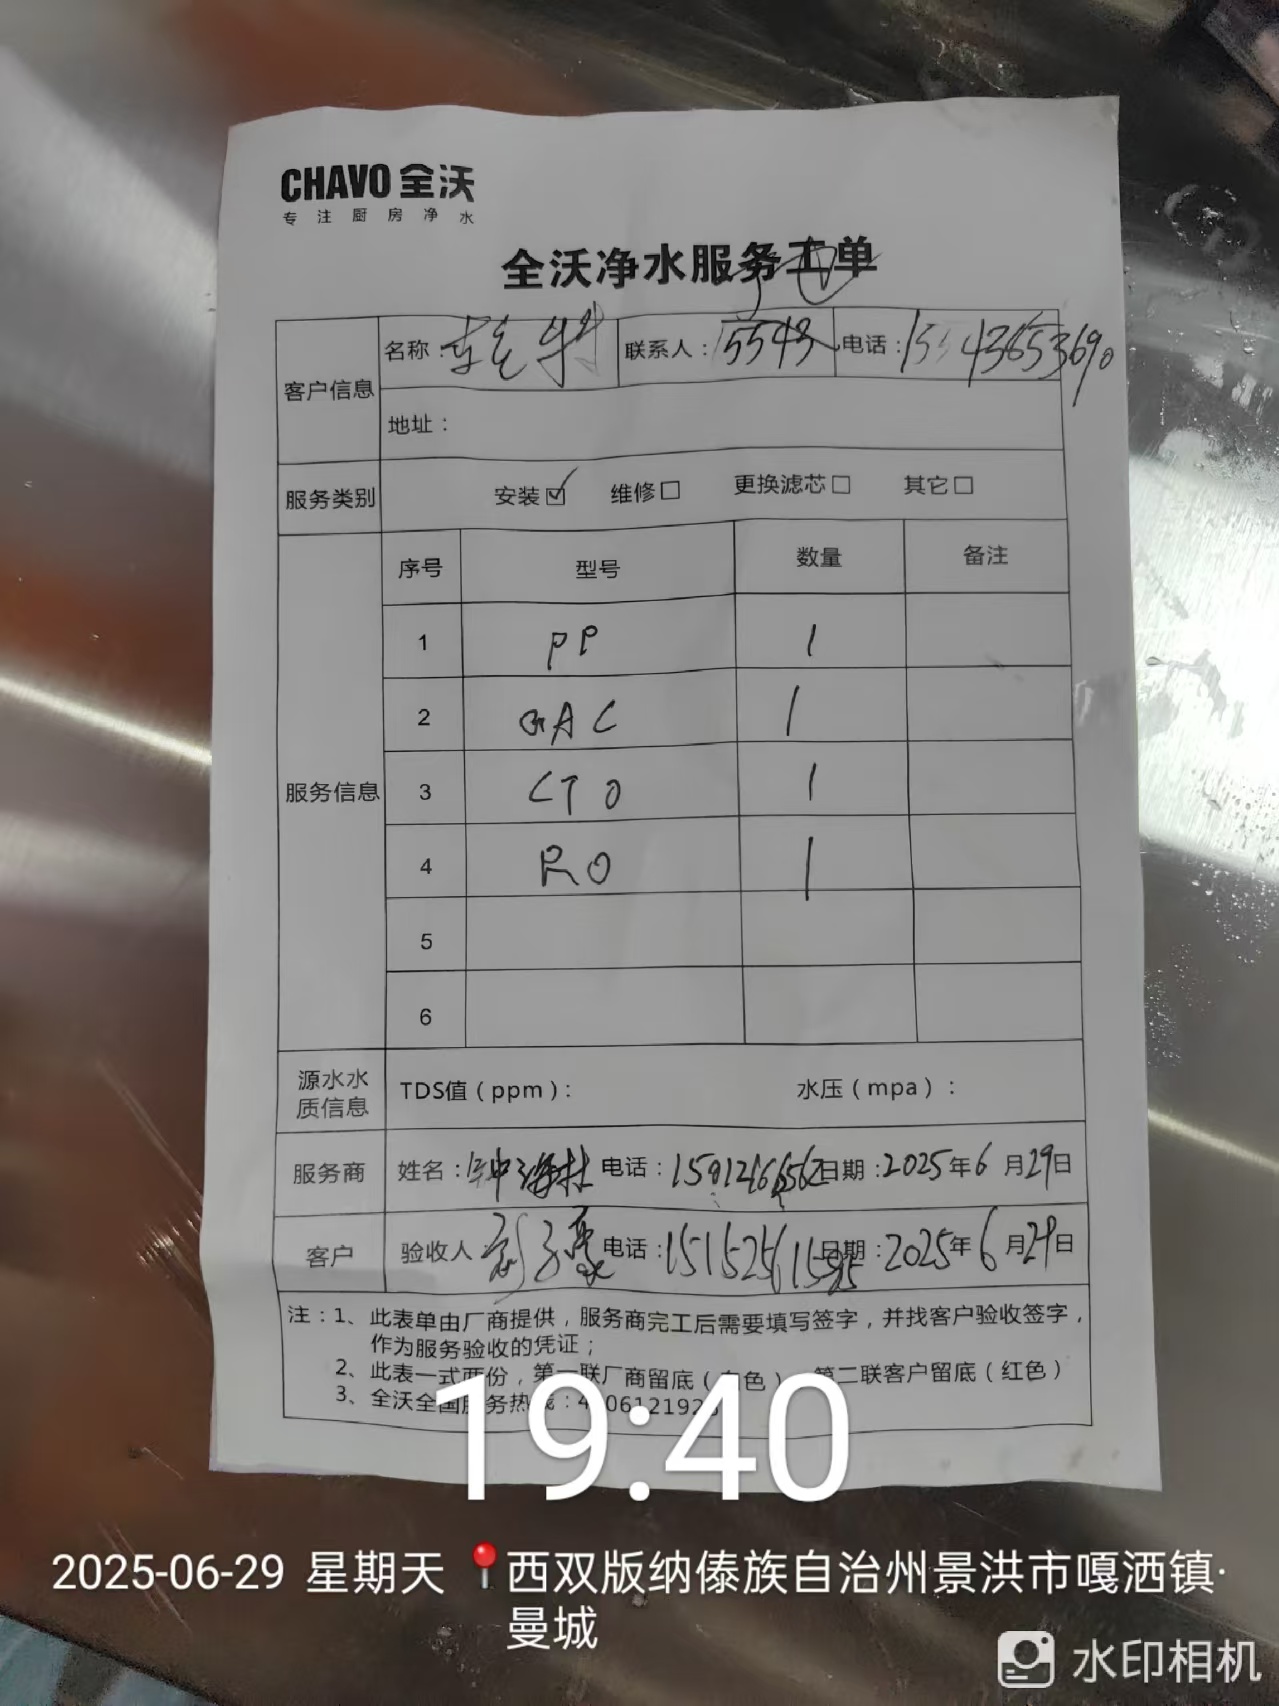 CHAVO 全沃
专注厨房净水
全沃净水服务工单
客户信息 名称： 联系人： 电话：
地址：
服务类别 安装☑ 维修□ 更换滤芯□ 其它□
服务信息 序号 型号 数量 备注
1 PP 1
2 GAC 1
3 CTO 1
4 RO 1
5
6
源水水质信息 TDS值（ppm）： 水压（mpa）：
服务商 姓名： 电话： 日期：2025年6月29日
客户 验收人 电话： 日期：2025年6月29日
注：1、此表单由厂商提供，服务商完工后需要填写签字，并找客户验收签字，
作为服务验收的凭证；
2、此表一式两份，第一联厂商留底（白色），第二联客户留底（红色）
3、全沃全国服务热线：
19:40
2025-06-29 星期天 西双版纳傣族自治州景洪市嘎洒镇·
曼城
水印相机